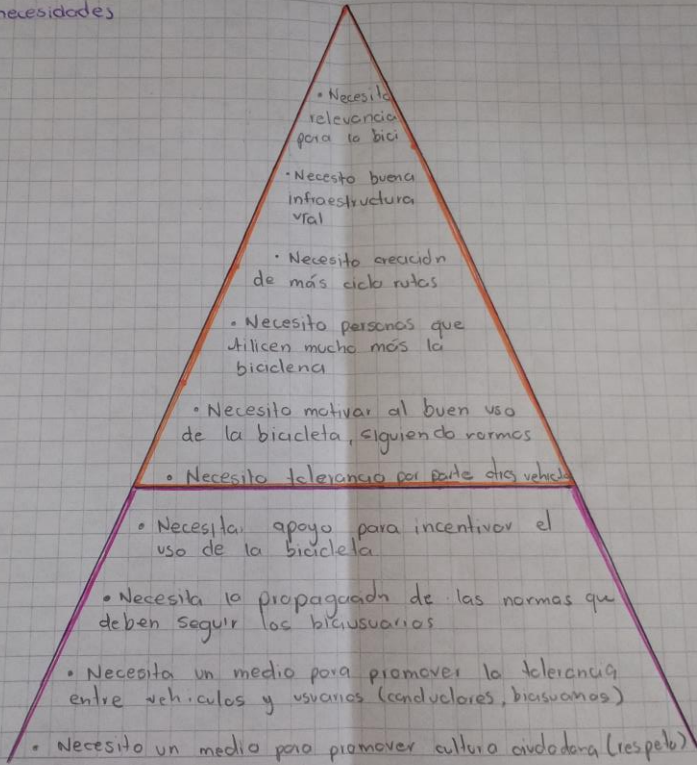 necesidades
• Necesito
relevancia
para la bici
• Necesto buena
infraestructura
vial
• Necesito creación
de más ciclo rutas
• Necesito personas que
utilicen mucho más la
bicicleta
• Necesito motivar al buen uso
de la bicicleta, siguiendo normas
• Necesito tolerancia por parte vehic
• Necesita apoyo para incentivar el
uso de la bicicleta
• Necesita la propagación de las normas que
deben seguir los biciusuarios
• Necesita un medio para promover la tolerancia
entre vehiculos y usuarios (conductores, biciusuarios)
• Necesito un medio para promover cultura ciudadana (respeto)